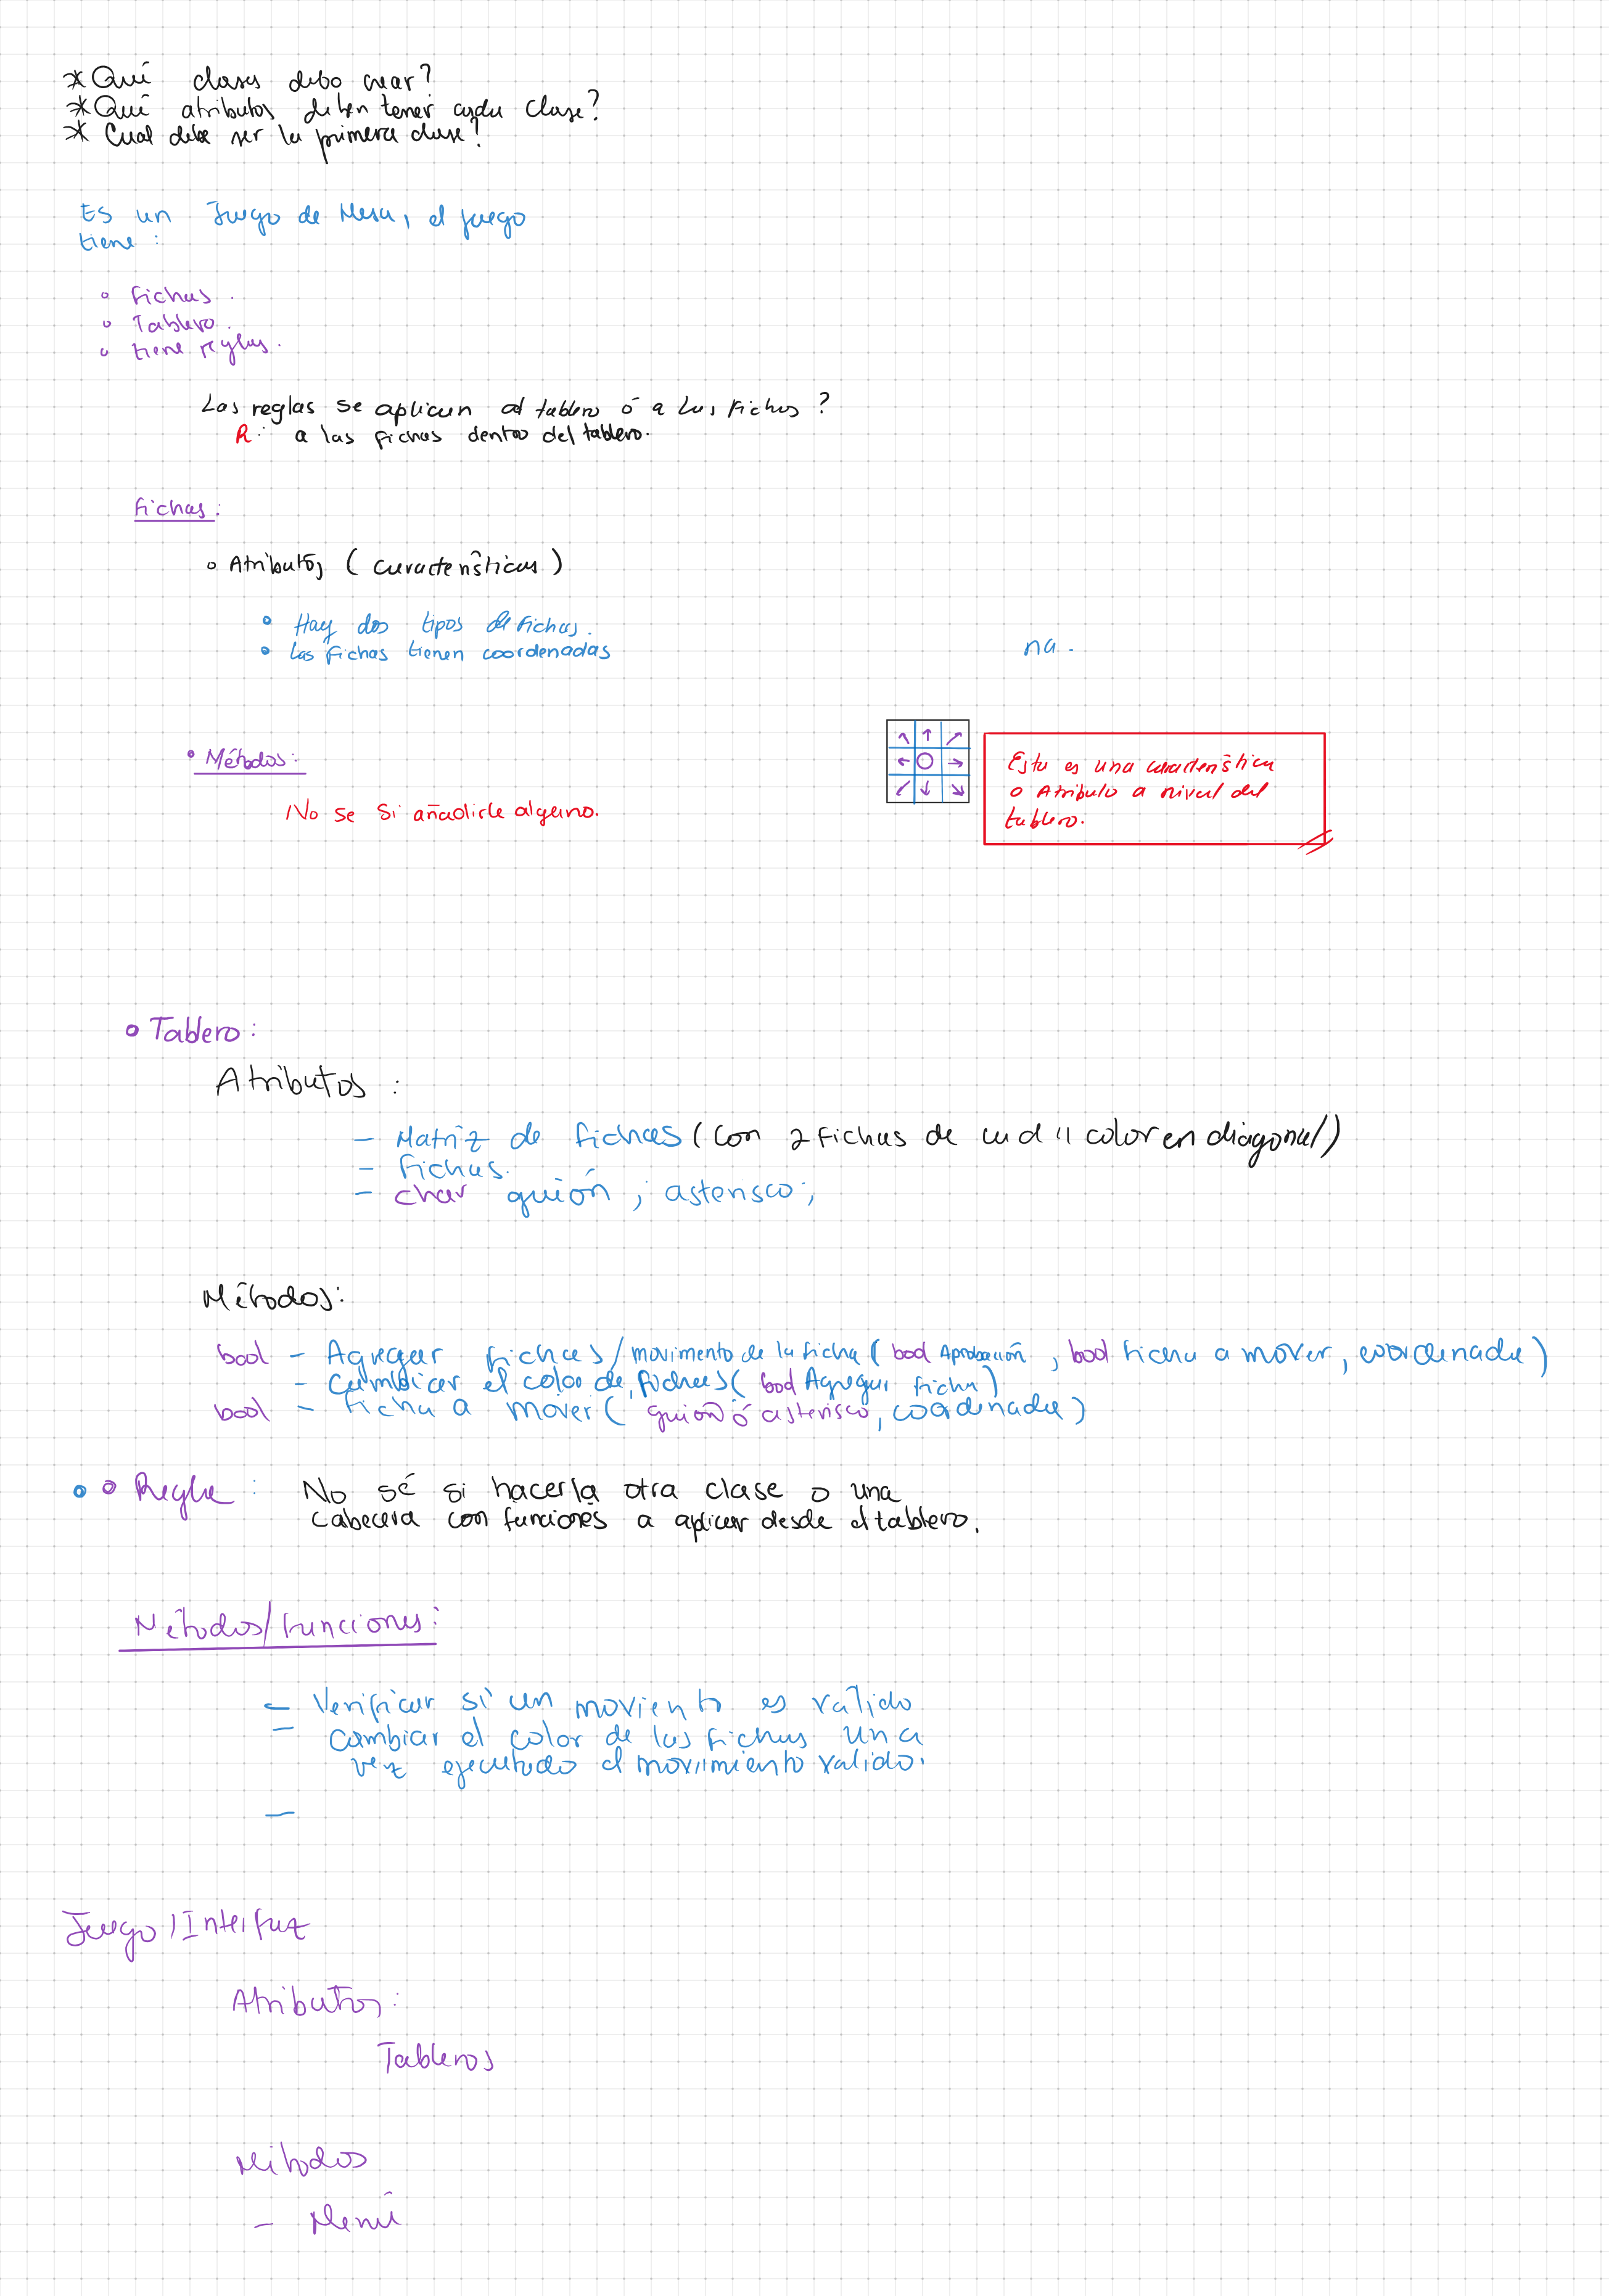 * Qué clases debo crear?
* Qué atributos deben tener cada clase?
* Cual debe ser la primera clase?
Es un Juego de Mesa, el juego
tiene:
◦ Fichas.
◦ Tablero.
◦ tiene reglas.
Las reglas se aplican al tablero ó a las fichas?
R: a las fichas dentro del tablero.
Fichas:
◦ Atributos (características)
• Hay dos tipos de fichas.
• Las fichas tienen coordenadas
na.
• Métodos:
No se si añadirle alguno.
Esta es una característica
o Atributo a nivel del
tablero.
◦ Tablero:
Atributos:
- Matriz de fichas (Con 2 fichas de cada color en diagonal)
- Fichas.
- char guión, asterisco;
Métodos:
bool - Agregar fichas/movimento de la ficha (bool Aprobación, bool Ficha a mover, coordenada)
- Cambiar el color de fichas (bool Agregar ficha)
bool - Ficha a mover (guión ó asterisco, coordenada)
◦ ◦ Regla: No sé si hacerla otra clase o una
cabecera con funciones a aplicar desde el tablero.
Métodos/Funciones:
- Verificar si un moviento es valido
- Cambiar el color de las fichas una
vez ejecutado el movimiento valido.
-
Juego/Interfaz
Atributos:
Tableros
Métodos
- Menú